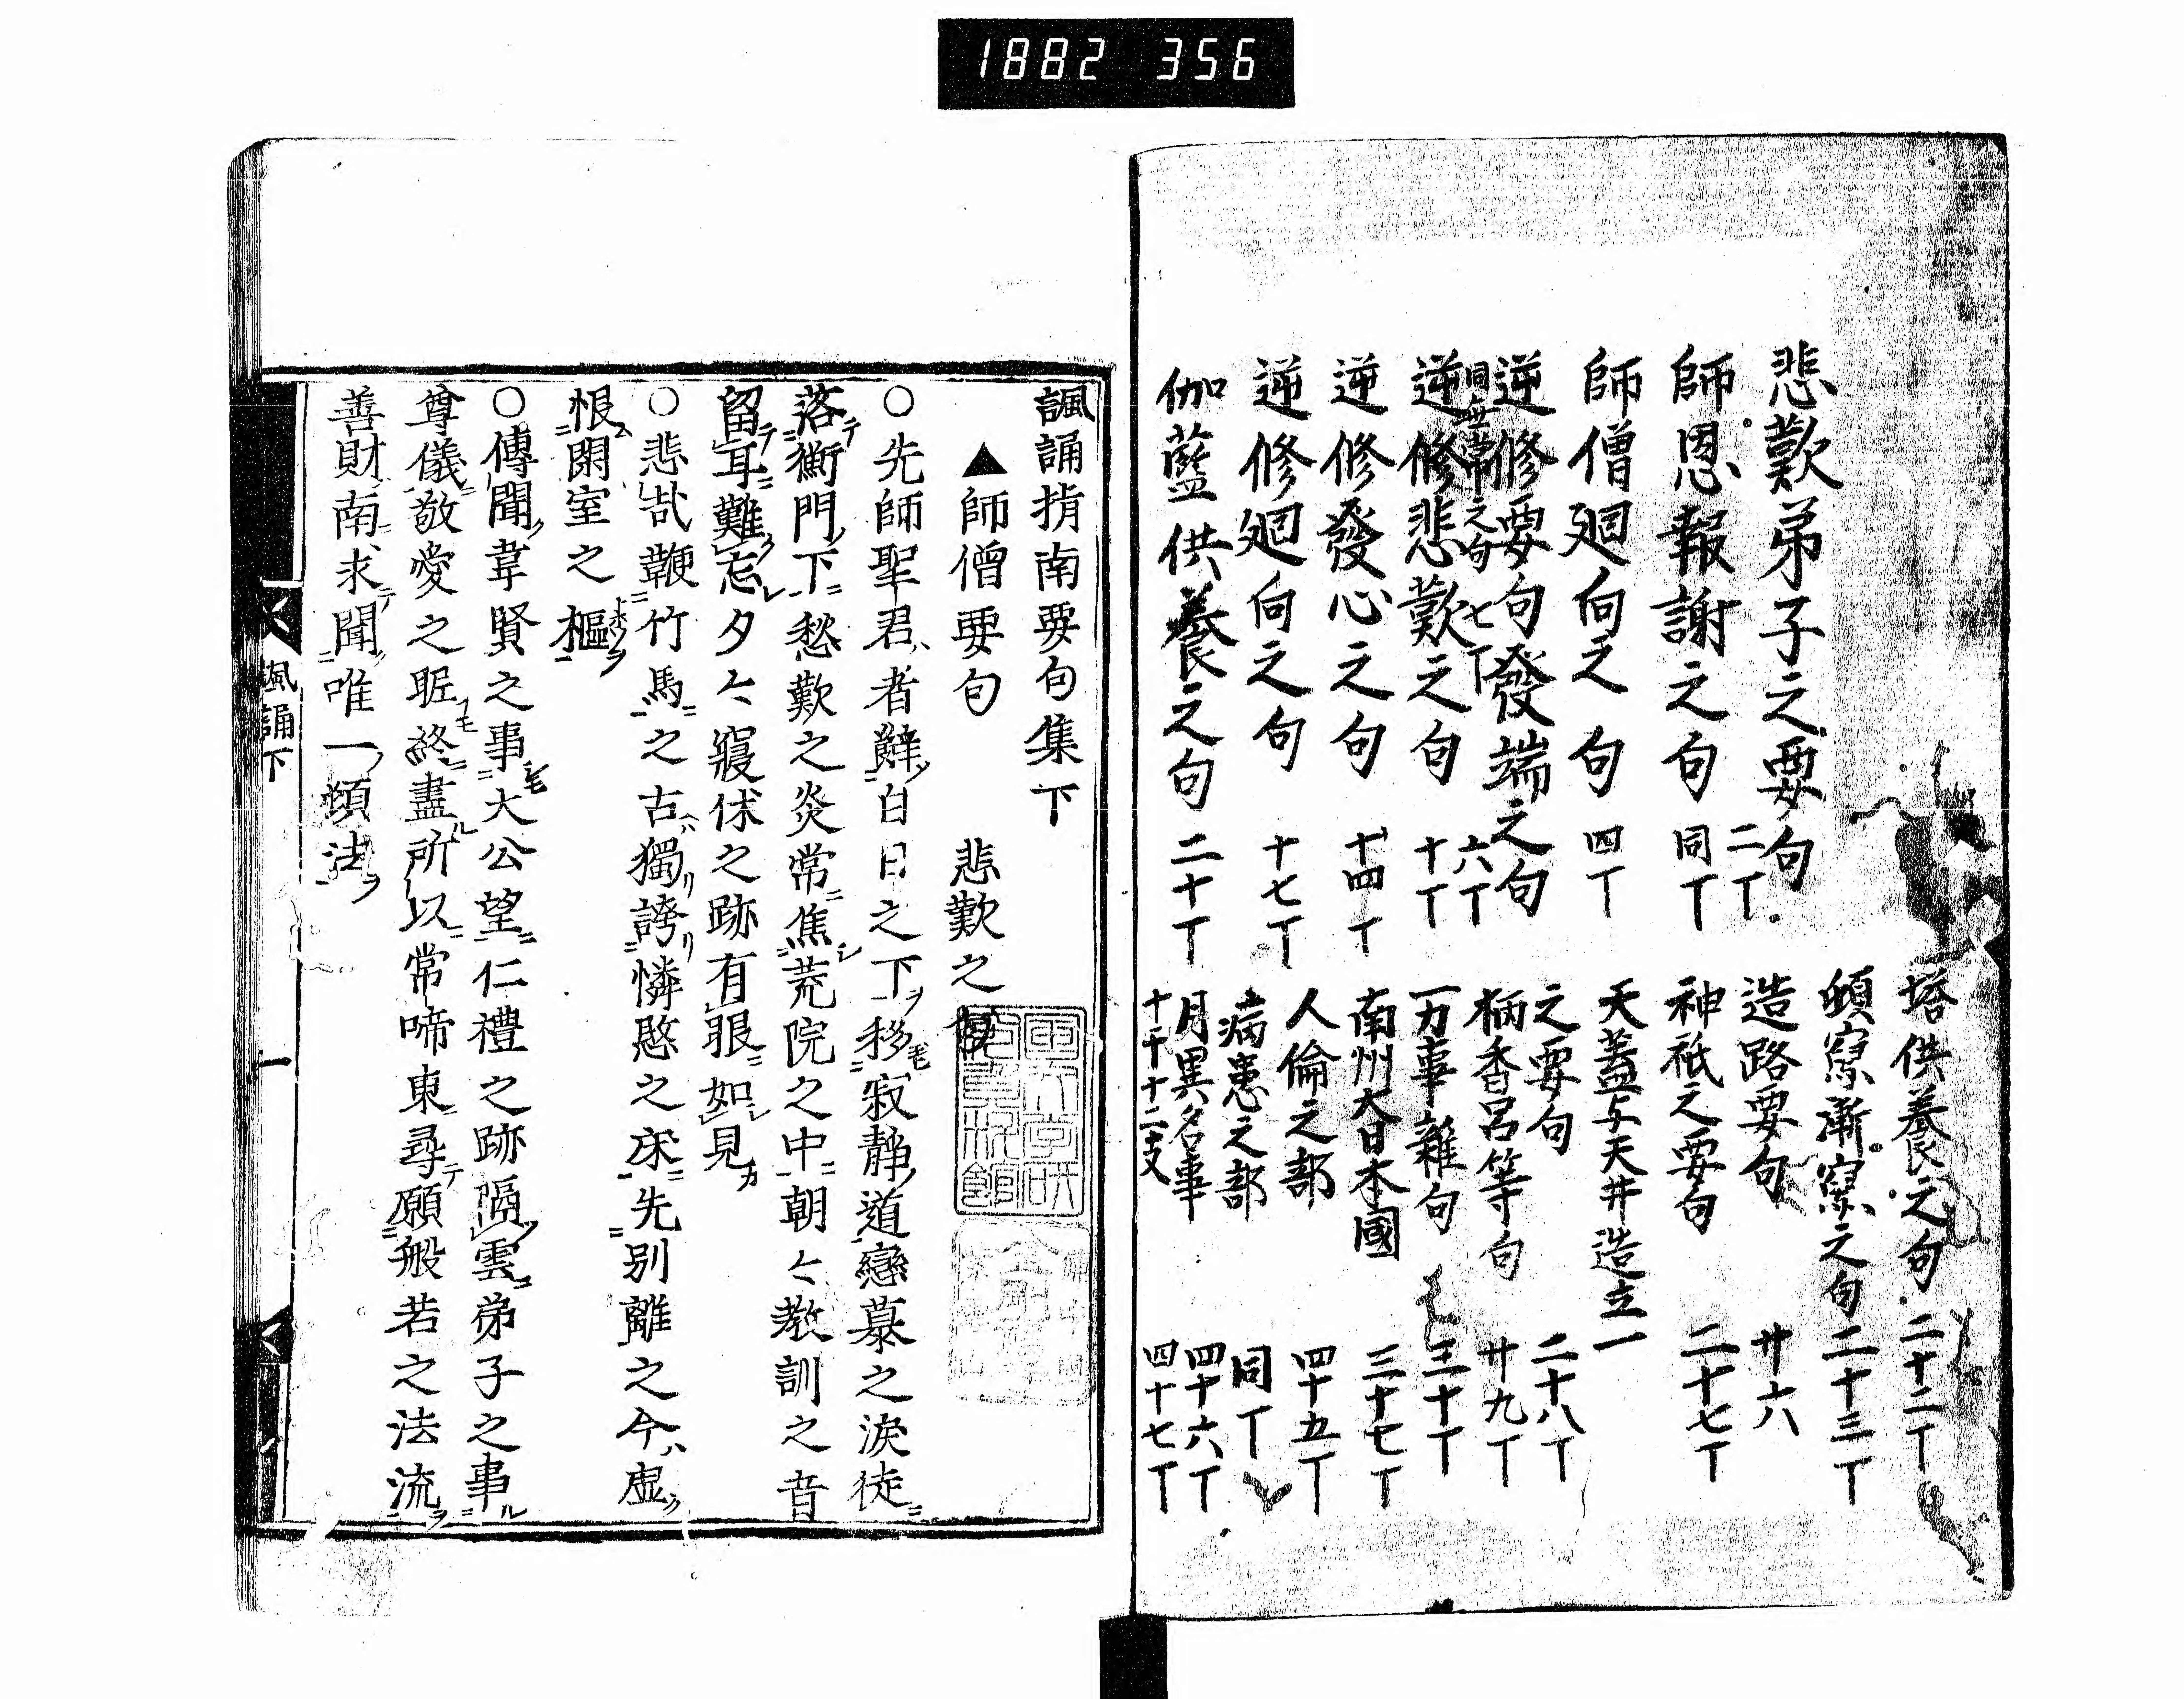 1882 356
悲歎弟子之要句 二丁
師恩報謝之句 同丁
師僧廻向之句 四丁
逆修要句發端之句 六丁
同無常之句 七丁
逆修悲歎之句 十丁
逆修發心之句 十四丁
逆修廻向之句 十七丁
伽藍供養之句 二十丁
塔供養之句 二十二丁
頓寫漸寫之句 二十三丁
造路要句 廿六
神祇之要句 二十七丁
天蓋与天井造立
之要句 二十八丁
柄香呂等句 廿九丁
一万事雜句 三十丁
南州大日本國 三十七丁
人倫之部 四十五丁
病患之部 同丁
月異名事 四十六丁
十干十二支 四十七丁
諷誦指南要句集下
▲師僧要句 悲歎之
○先師聖君者辭白日之下移寂静道戀慕之涙徒
落衡門下愁歎之炎常焦荒院之中朝々教訓之音
留耳難忘夕々寢伏之跡有眼如見
○悲哉鞭竹馬之古獨誇憐愍之床先別離之今虚
恨閑室之樞
○傳聞韋賢之事大公望仁禮之跡隔雲弟子之事
尊儀敬愛之眤終盡所以常啼東尋願般若之法流
善財南求聞唯一頓法
諷誦下 一